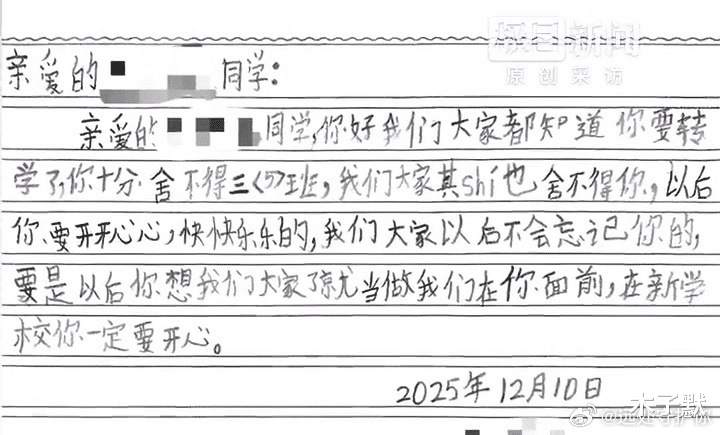 极目新闻
原创采访
亲爱的 同学:
亲爱的 同学,你好我们大家都知道你要转
学了,你十分舍不得三<5>班,我们大家其shí也舍不得你,以后
你要开开心心,快快乐乐的,我们大家以后不会忘记你的,
要是以后你想我们大家了就当做我们在你面前,在新学
校你一定要开心。
2025年12月10日
木子默